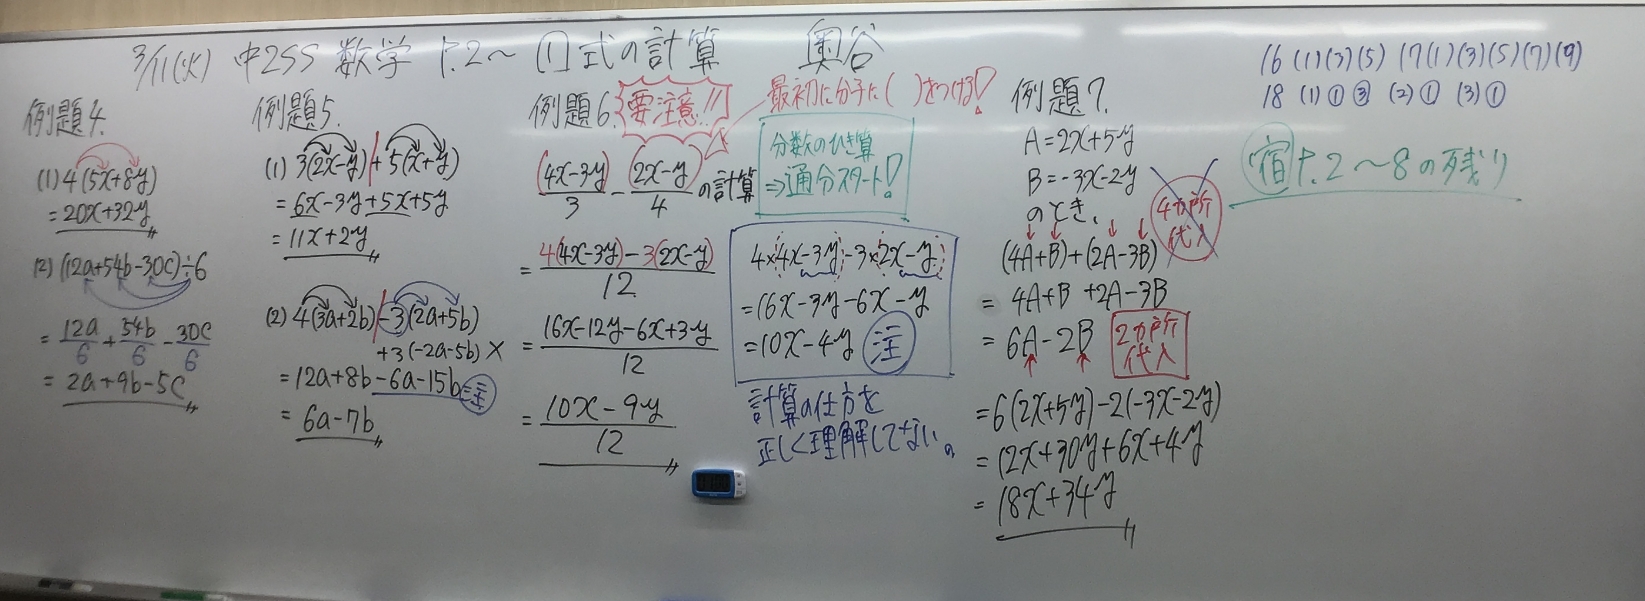 3/11(火) 中2SS 数学 P.2～ ①式の計算 奥谷
例題4.
(1) 4(5x+8y)
=20x+32y
(2) (12a+54b-30c)÷6
= 12a/6 + 54b/6 - 30c/6
= 2a+9b-5c
例題5.
(1) 3(2x-y)+5(x+y)
= 6x-3y+5x+5y
= 11x+2y
(2) 4(3a+2b)-3(2a+5b)
+3(-2a-5b) ×
=12a+8b-6a-15b 注
= 6a-7b
例題6. 要注意!!
最初に分子に( )をつける!
(4x-3y)/3 - (2x-y)/4 の計算
分数のひき算
⇒通分スタート!
= 4(4x-3y)-3(2x-y)/12
= 16x-12y-6x+3y/12
= 10x-9y/12
4×4x-3y-3×2x-y
=16x-3y-6x-y
=10x-4y 注
計算の仕方を
正しく理解してない。
例題7.
A=2x+5y
B=-3x-2y
のとき、
4カ所
代入
(4A+B)+(2A-3B)
= 4A+B+2A-3B
= 6A-2B
2カ所
代入
=6(2x+5y)-2(-3x-2y)
=12x+30y+6x+4y
=18x+34y
16 (1)(3)(5) 17(1)(3)(5)(7)(9)
18 (1)①③ (2)① (3)①
宿 P.2～8の残り